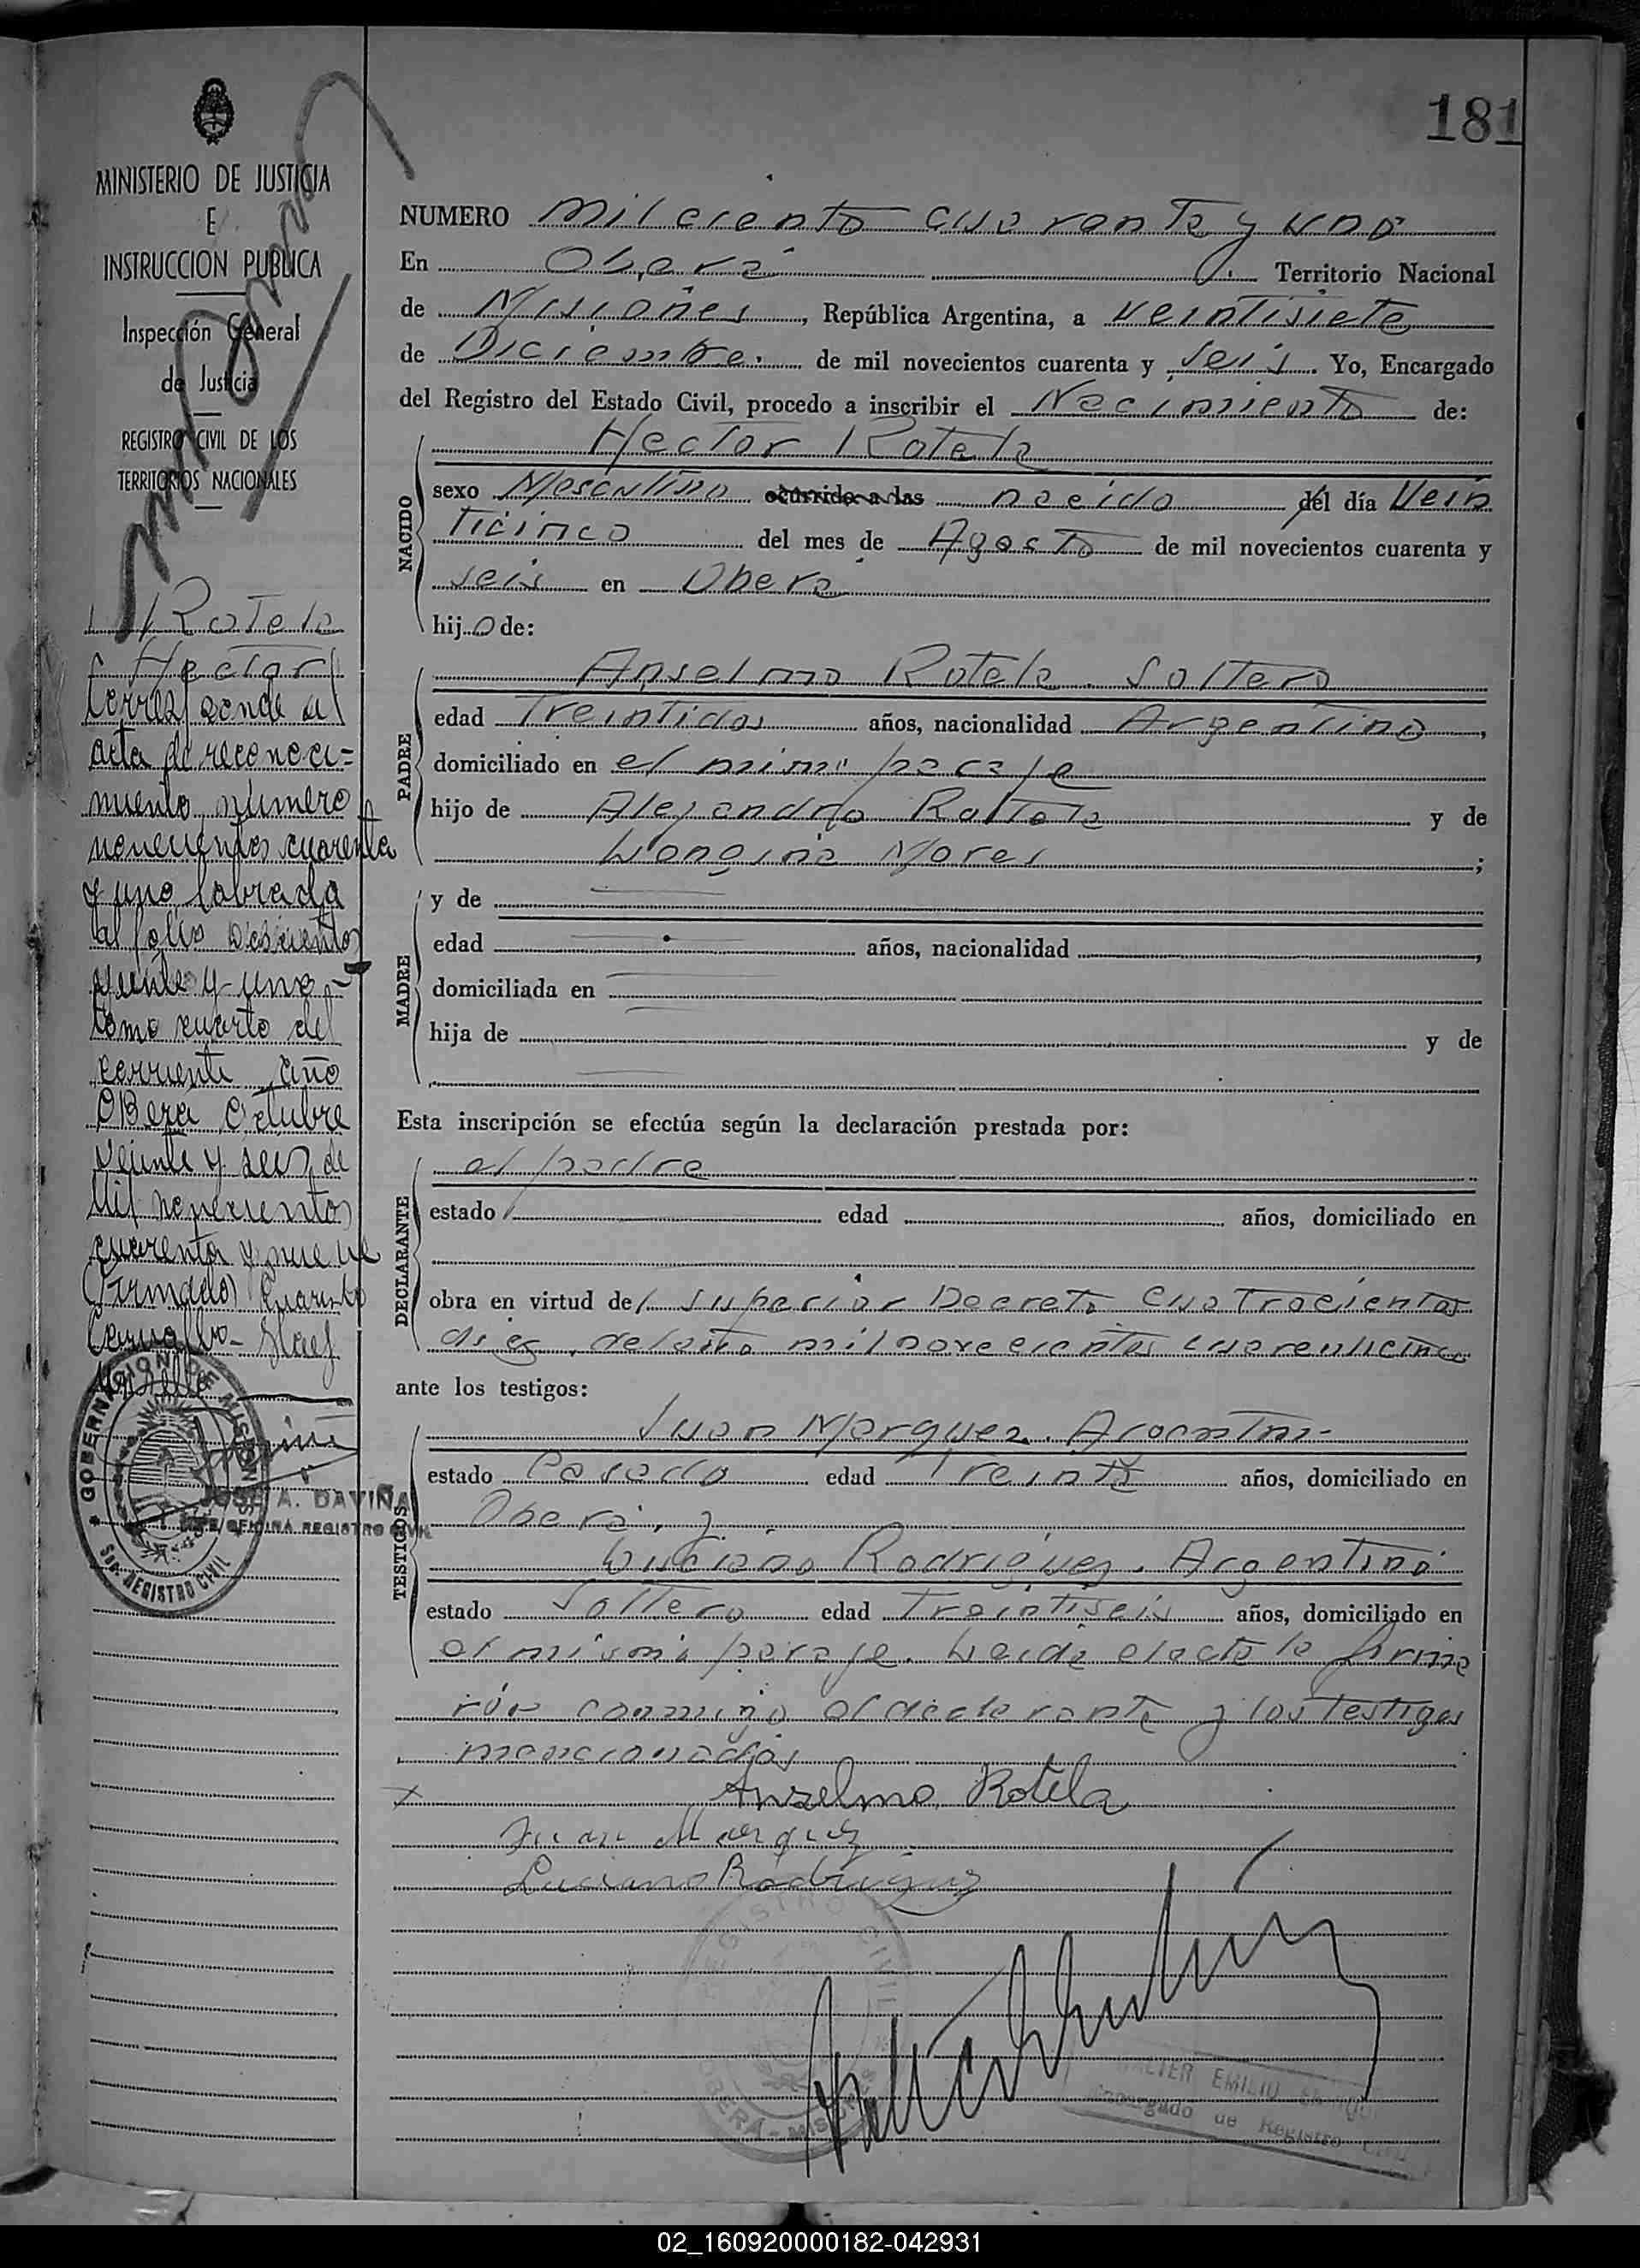 181
MINISTERIO DE JUSTICIA
E
INSTRUCCION PUBLICA
Inspección General
de Justicia
REGISTRO CIVIL DE LOS
TERRITORIOS NACIONALES
Rotela
Hector
Corresponde al
acta de reconoci-
miento numero
novecientos cuarenta
y uno labrada
al folio doscientos
veinte y uno -
tomo cuarto del
corriente año
Oberá Octubre
veinte y seis de
Mil novecientos
cuarenta y nueve
(Firmado)
GOBERNACION DE MISIONES
Sec. REGISTRO CIVIL
JOSE A. DAVIÑA
JEFE OFICINA REGISTRO CIVIL
NUMERO mil ciento cuarenta y uno
En Oberá Territorio Nacional
de Misiones, República Argentina, a veintisiete
de Diciembre. de mil novecientos cuarenta y seis. Yo, Encargado
del Registro del Estado Civil, procedo a inscribir el Nacimiento de:
NACIDO
Hector Rotela
sexo Masculino ocurrido a las nacido del día Vein
ticinco del mes de Agosto de mil novecientos cuarenta y
seis en Oberá
hijo de:
PADRE
Anselmo Rotela. Soltero
edad Treintidos años, nacionalidad Argentino,
domiciliado en el mismo paraje
hijo de Alejandro Rottela y de
Longina Mores;
MADRE
y de
edad años, nacionalidad
domiciliada en
hija de y de
Esta inscripción se efectúa según la declaración prestada por:
DECLARANTE
el padre
estado edad años, domiciliado en
obra en virtud del Superior Decreto Cuatrocientos
diez, del año mil novecientos cuarenticinco
ante los testigos:
TESTIGOS
Juan Marquez. Argentino
estado Casado edad Treinta años, domiciliado en
Oberá, y
Luciano Rodriguez. Argentino
estado Soltero edad Treintiseis años, domiciliado en
el mismo paraje. Leida el acta la firma
rón conmigo el declarante y los testigos
mencionados
x Anzelmo Rotela
Juan Marquez
Luciano Rodriguez
REGISTRO CIVIL
OBERA - MISIONES
WALTER EMILIO
Encargado de Registro Civil
02_160920000182-042931